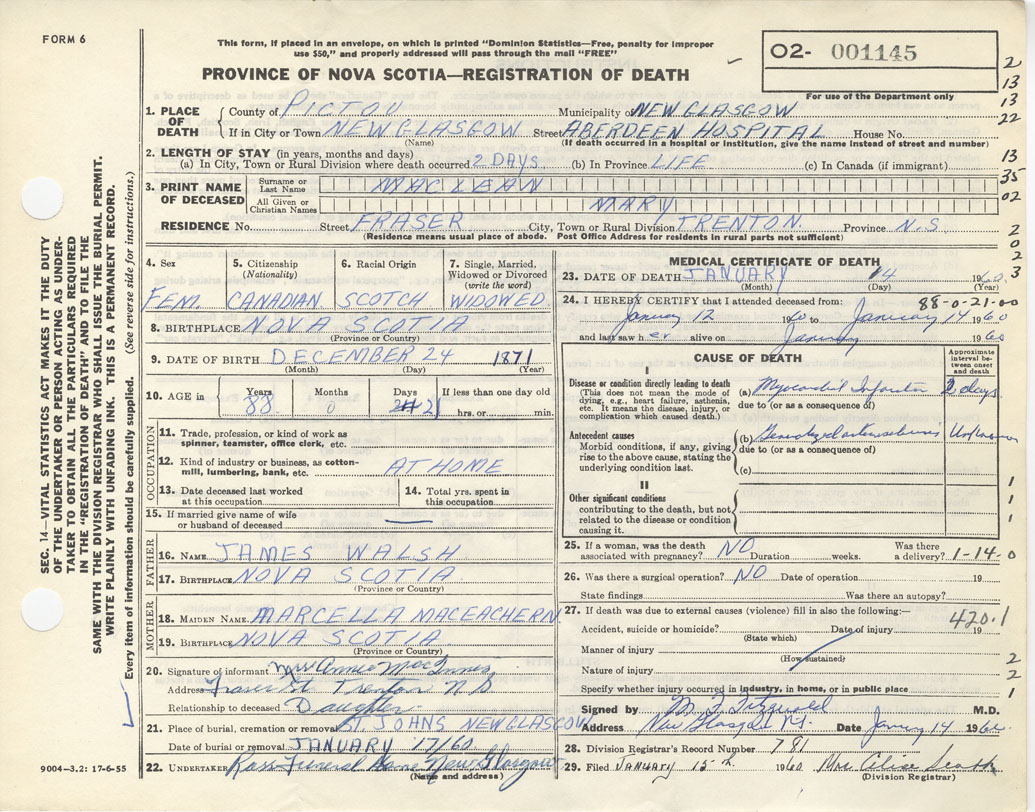 FORM 6
This form, if placed in an envelope, on which is printed "Dominion Statistics—Free, penalty for improper
use $50," and properly addressed will pass through the mail "FREE"
PROVINCE OF NOVA SCOTIA—REGISTRATION OF DEATH
O2- 001145
For use of the Department only
2
13
13
22
13
35
02
2
0
2
3
1. PLACE OF DEATH
County of PICTOU Municipality of NEW GLASGOW
If in City or Town NEW GLASGOW Street ABERDEEN HOSPITAL House No.
(Name) (If death occurred in a hospital or institution, give the name instead of street and number)
2. LENGTH OF STAY (in years, months and days)
(a) In City, Town or Rural Division where death occurred 2 DAYS (b) In Province LIFE (c) In Canada (if immigrant)
3. PRINT NAME OF DECEASED
Surname or Last Name MACLEAN
All Given or Christian Names MARY
RESIDENCE No. Street FRASER City, Town or Rural Division TRENTON Province N.S
(Residence means usual place of abode. Post Office Address for residents in rural parts not sufficient)
4. Sex FEM.
5. Citizenship (Nationality) CANADIAN
6. Racial Origin SCOTCH
7. Single, Married, Widowed or Divorced (write the word) WIDOWED
8. BIRTHPLACE NOVA SCOTIA
(Province or Country)
9. DATE OF BIRTH DECEMBER 24 1871
(Month) (Day) (Year)
10. AGE in Years 88 Months 0 Days 21 If less than one day old hrs. or min.
OCCUPATION
11. Trade, profession, or kind of work as spinner, teamster, office clerk, etc.
12. Kind of industry or business, as cotton-mill, lumbering, bank, etc. AT HOME
13. Date deceased last worked at this occupation
14. Total yrs. spent in this occupation
15. If married give name of wife or husband of deceased
FATHER
16. NAME JAMES WALSH
17. BIRTHPLACE NOVA SCOTIA
(Province or Country)
MOTHER
18. MAIDEN NAME MARCELLA MACEACHERN
19. BIRTHPLACE NOVA SCOTIA
(Province or Country)
20. Signature of informant Mrs Annie MacInnes
Address Fraser St Trenton N S
Relationship to deceased Daughter
21. Place of burial, cremation or removal ST JOHNS NEW GLASGOW
Date of burial or removal JANUARY 17/60
22. UNDERTAKER Ross Funeral Home New Glasgow
(Name and address)
MEDICAL CERTIFICATE OF DEATH
23. DATE OF DEATH JANUARY 14 1960
(Month) (Day) (Year)
24. I HEREBY CERTIFY that I attended deceased from: 88-0-21-00
January 12 1960 to January 14 1960
and last saw her alive on January 1960
CAUSE OF DEATH
Approximate interval between onset and death
I
Disease or condition directly leading to death
(This does not mean the mode of dying, e.g., heart failure, asthenia, etc. It means the disease, injury, or complication which caused death.)
(a) Myocardial Infarction 2 days
due to (or as a consequence of)
Antecedent causes
Morbid conditions, if any, giving rise to the above cause, stating the underlying condition last.
(b) Generalized arteriosclerosis Unknown
due to (or as a consequence of)
(c)
II
Other significant conditions
contributing to the death, but not related to the disease or condition causing it.
1
1
1
25. If a woman, was the death associated with pregnancy? NO Duration weeks. Was there a delivery? 1-14-0
26. Was there a surgical operation? NO Date of operation 19
State findings Was there an autopsy?
27. If death was due to external causes (violence) fill in also the following:—
420.1
Accident, suicide or homicide? Date of injury 19
(State which)
Manner of injury
(How sustained)
Nature of injury
Specify whether injury occurred in industry, in home, or in public place
1
2
2
1
Signed by M. F. Fitzgerald M.D.
Address New Glasgow N.S. Date January 14 1960
28. Division Registrar's Record Number 781
29. Filed JANUARY 15th 1960 Mrs Alice
(Division Registrar)
SEC. 14—VITAL STATISTICS ACT MAKES IT THE DUTY
OF THE UNDERTAKER OR PERSON ACTING AS UNDER-
TAKER TO OBTAIN ALL THE PARTICULARS REQUIRED
IN THE "REGISTRATION OF DEATH" AND TO FILE THE
SAME WITH THE DIVISION REGISTRAR WHO SHALL ISSUE THE BURIAL PERMIT.
WRITE PLAINLY WITH UNFADING INK. THIS IS A PERMANENT RECORD.
Every item of information should be carefully supplied. (See reverse side for instructions.)
9004-3.2: 17-6-55